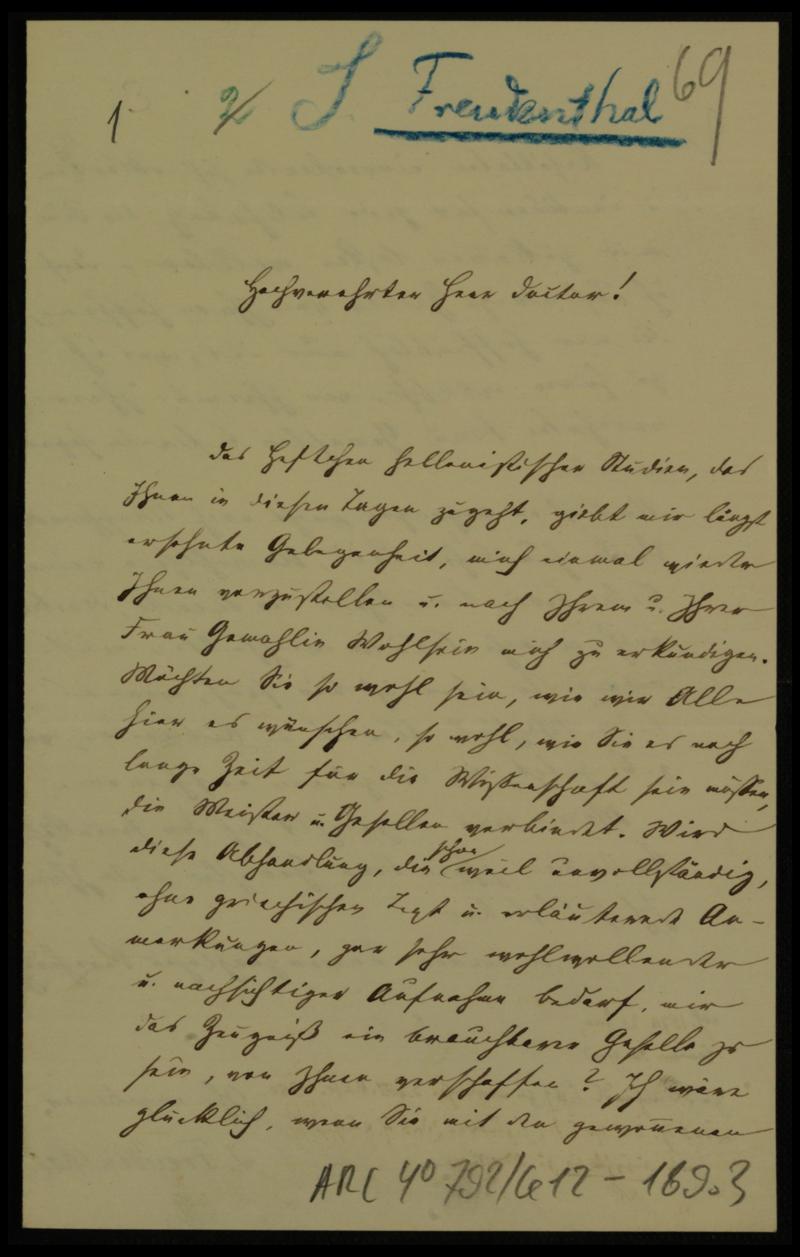 69
1. 2/ J. Freudenthal
Hochverehrter Herr Doctor!
Das Heftchen hellenistischer Studien, das
Ihnen in diesen Tagen zugeht, giebt mir längst
ersehnte Gelegenheit, mich einmal wieder
Ihnen vorzustellen u. nach Ihrem u. Ihrer
Frau Gemahlin Wohlsein mich zu erkundigen.
Möchten Sie so wohl sein, wie wir Alle
hier es wünschen, so wohl, wie Sie es noch
lange Zeit für die Wissenschaft sein müssen,
die Meister u. Gesellen verbindet. Wird
diese Abhandlung, die schon weil unvollständig,
ohne griechischen Text u. erläuternde An-
merkungen, gar sehr wohlwollender
u. nachsichtiger Aufnahme bedarf, mir
das Zeugniß ein brauchbarer Geselle zu
sein, von Ihnen verschaffen? Ich wäre
glücklich, wenn Sie mit den gewonnenen
ARC 4° 792/G12 - 169.3